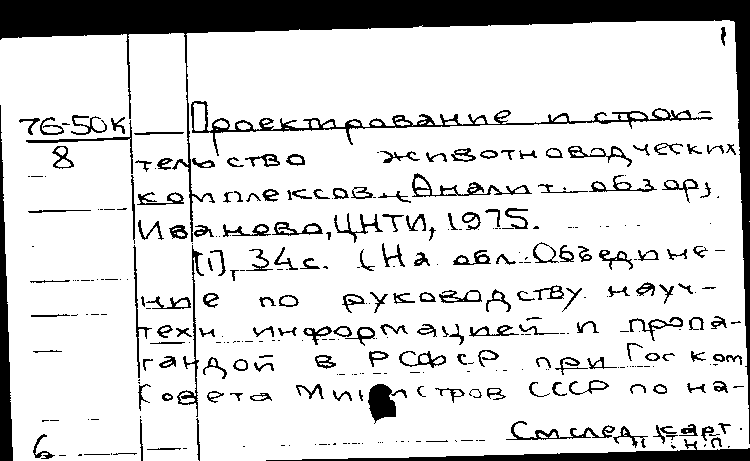 1
76-50К Проектирование и строи=
8 тельство животноводческих
комплексов. (Аналит. обзор).
Иваново, ЦНТИ, 1975.
[1], 34 с. (На обл. Объедине-
ние по руководству науч-
техн информацией и пропа-
гандой в РСФСР при Гос ком
Совета Министров СССР по на-
См след карт.
6